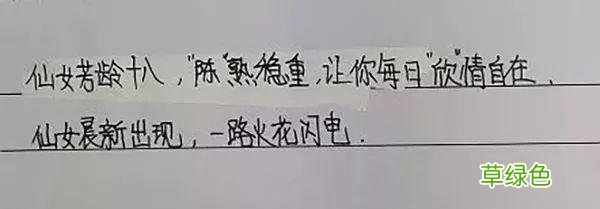 仙女芳龄十八，"陈"熟稳重，让你每日"欣"情自在．
仙女晨新出现，一路火花闪电．
草绿色